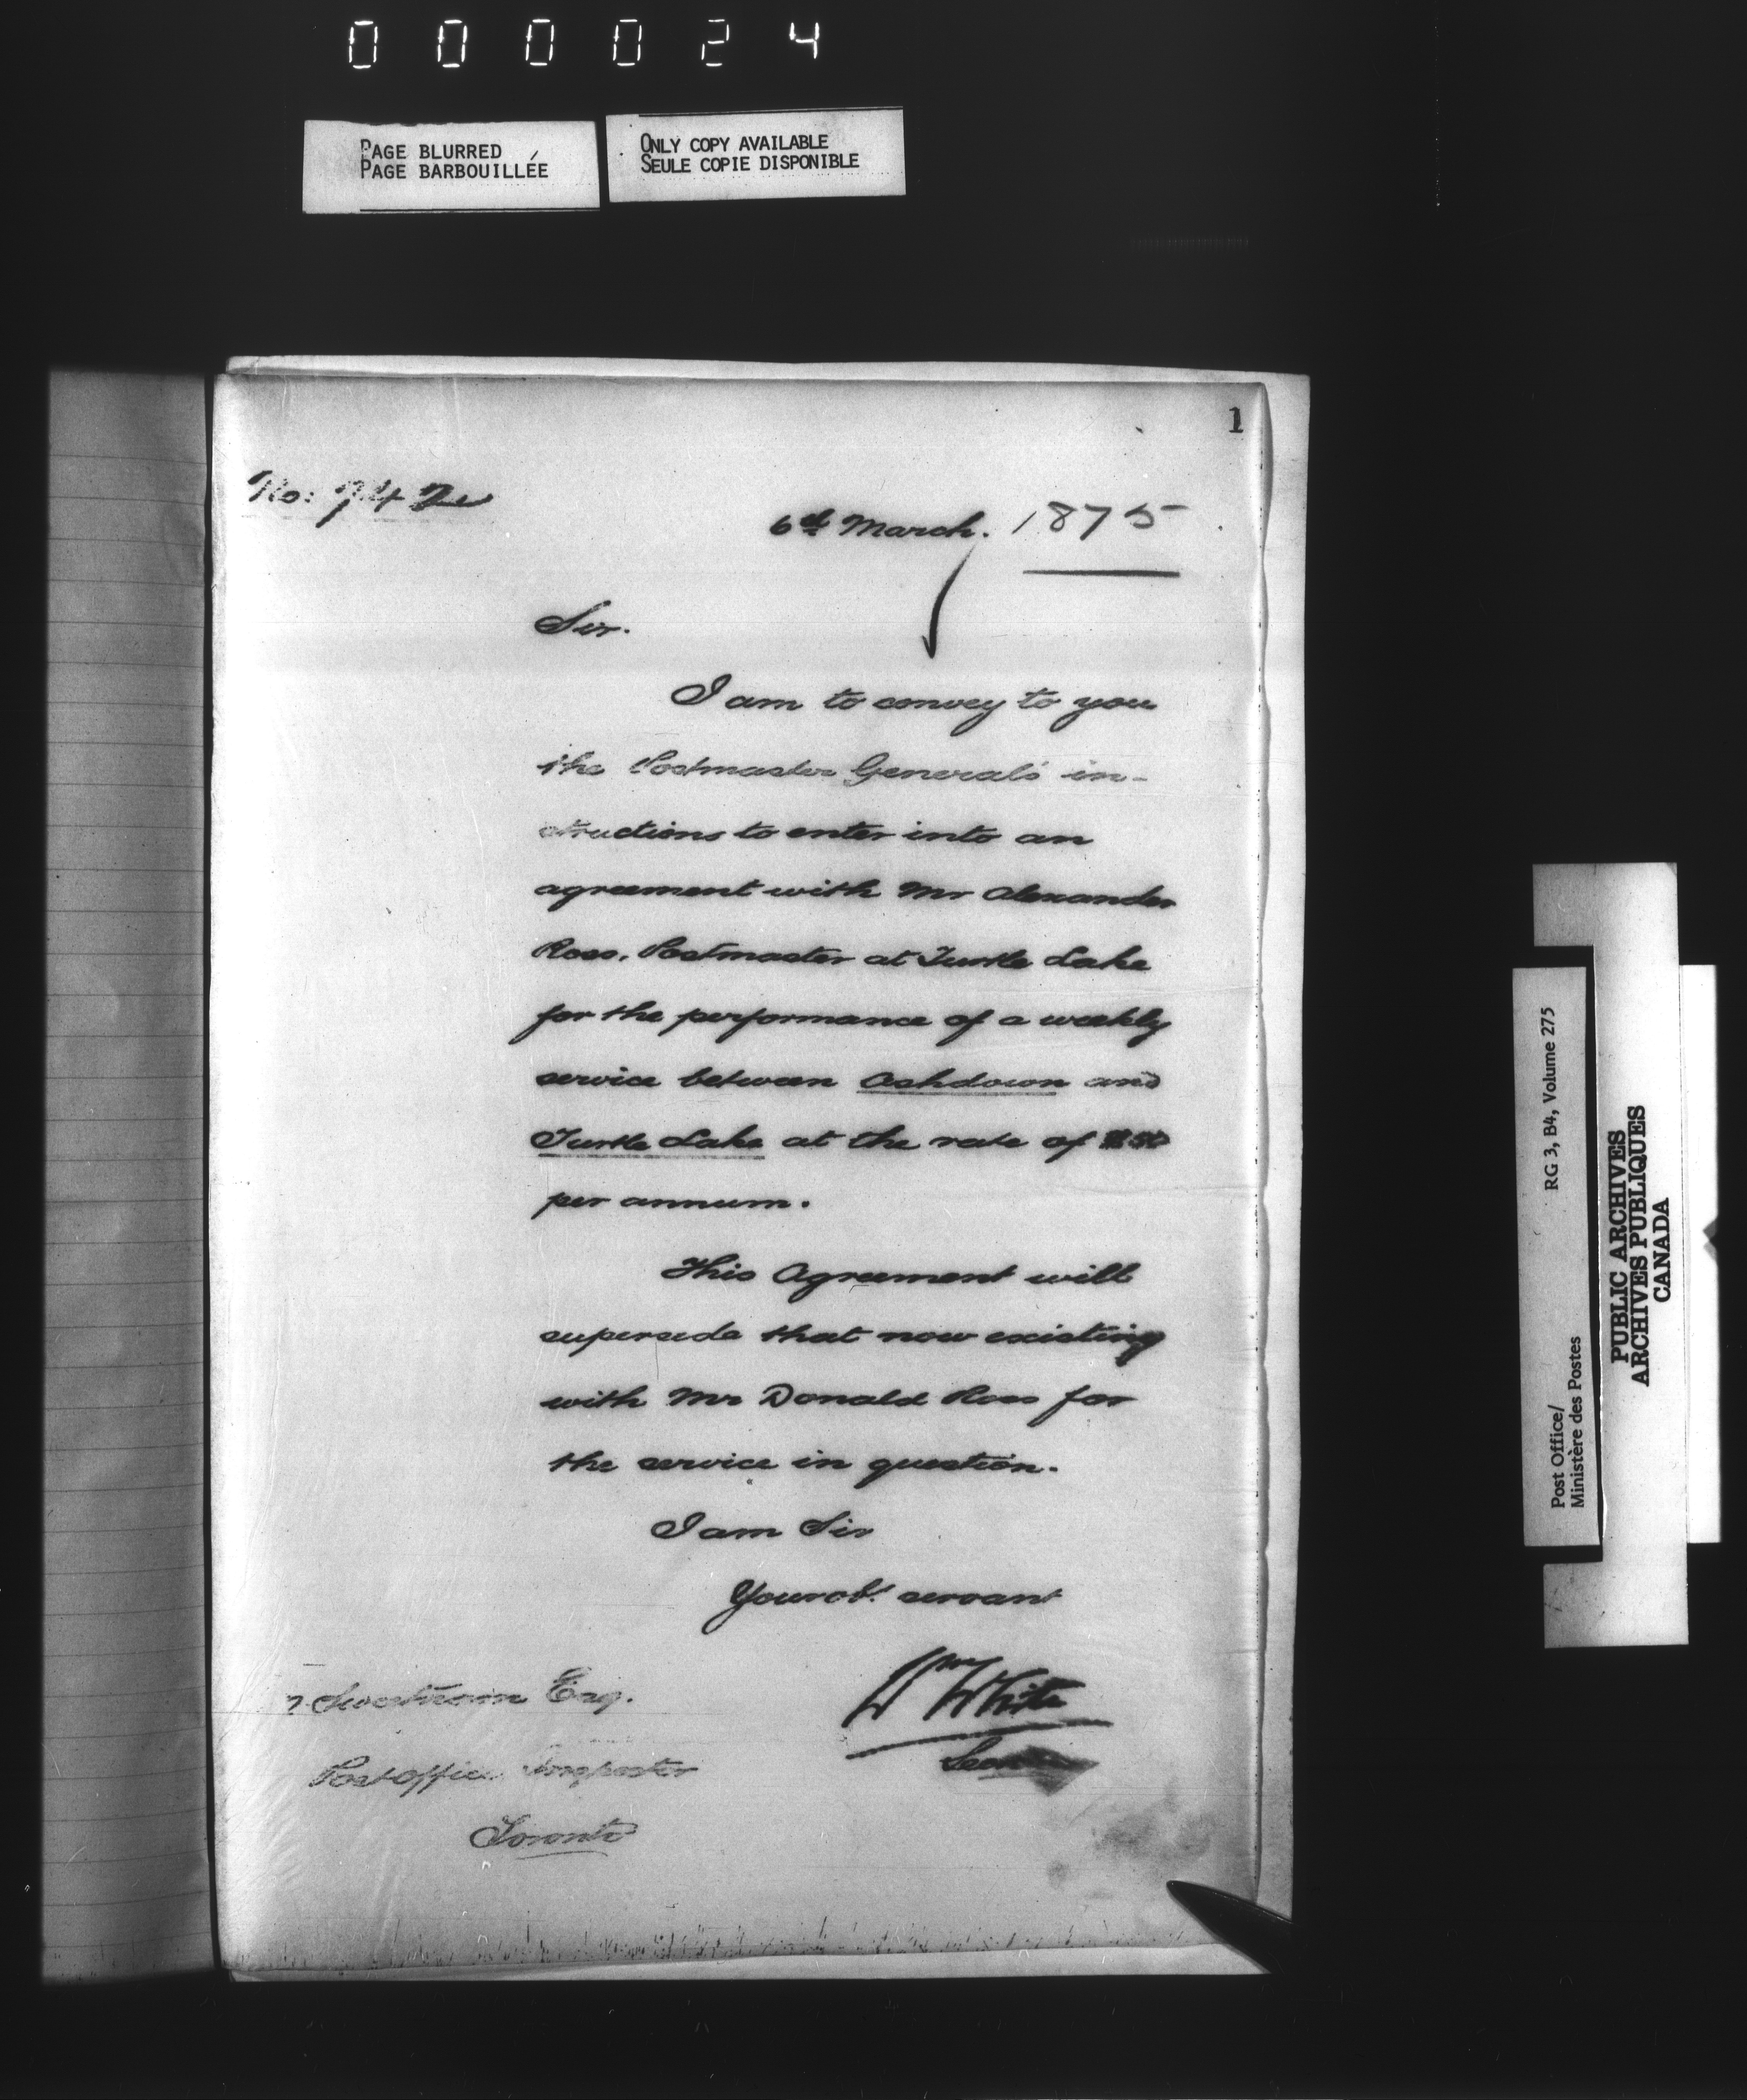 000024
PAGE BLURRED
PAGE BARBOUILLÉE
ONLY COPY AVAILABLE
SEULE COPIE DISPONIBLE
1
No: 742
6th March. 1875
Sir.
I am to convey to you
the Postmaster General's in-
structions to enter into an
agreement with Mr Alexander
Ross, Postmaster at Turtle Lake
for the performance of a weekly
service between Ashdown and
Turtle Lake at the rate of
per annum.
This Agreement will
supersede that now existing
with Mr Donald Ross for
the service in question.
I am Sir
Your obt. servant
Wm White
Esq.
Post Office Inspector
Toronto
Post Office/
Ministère des Postes
RG 3, B4, Volume 275
PUBLIC ARCHIVES
ARCHIVES PUBLIQUES
CANADA